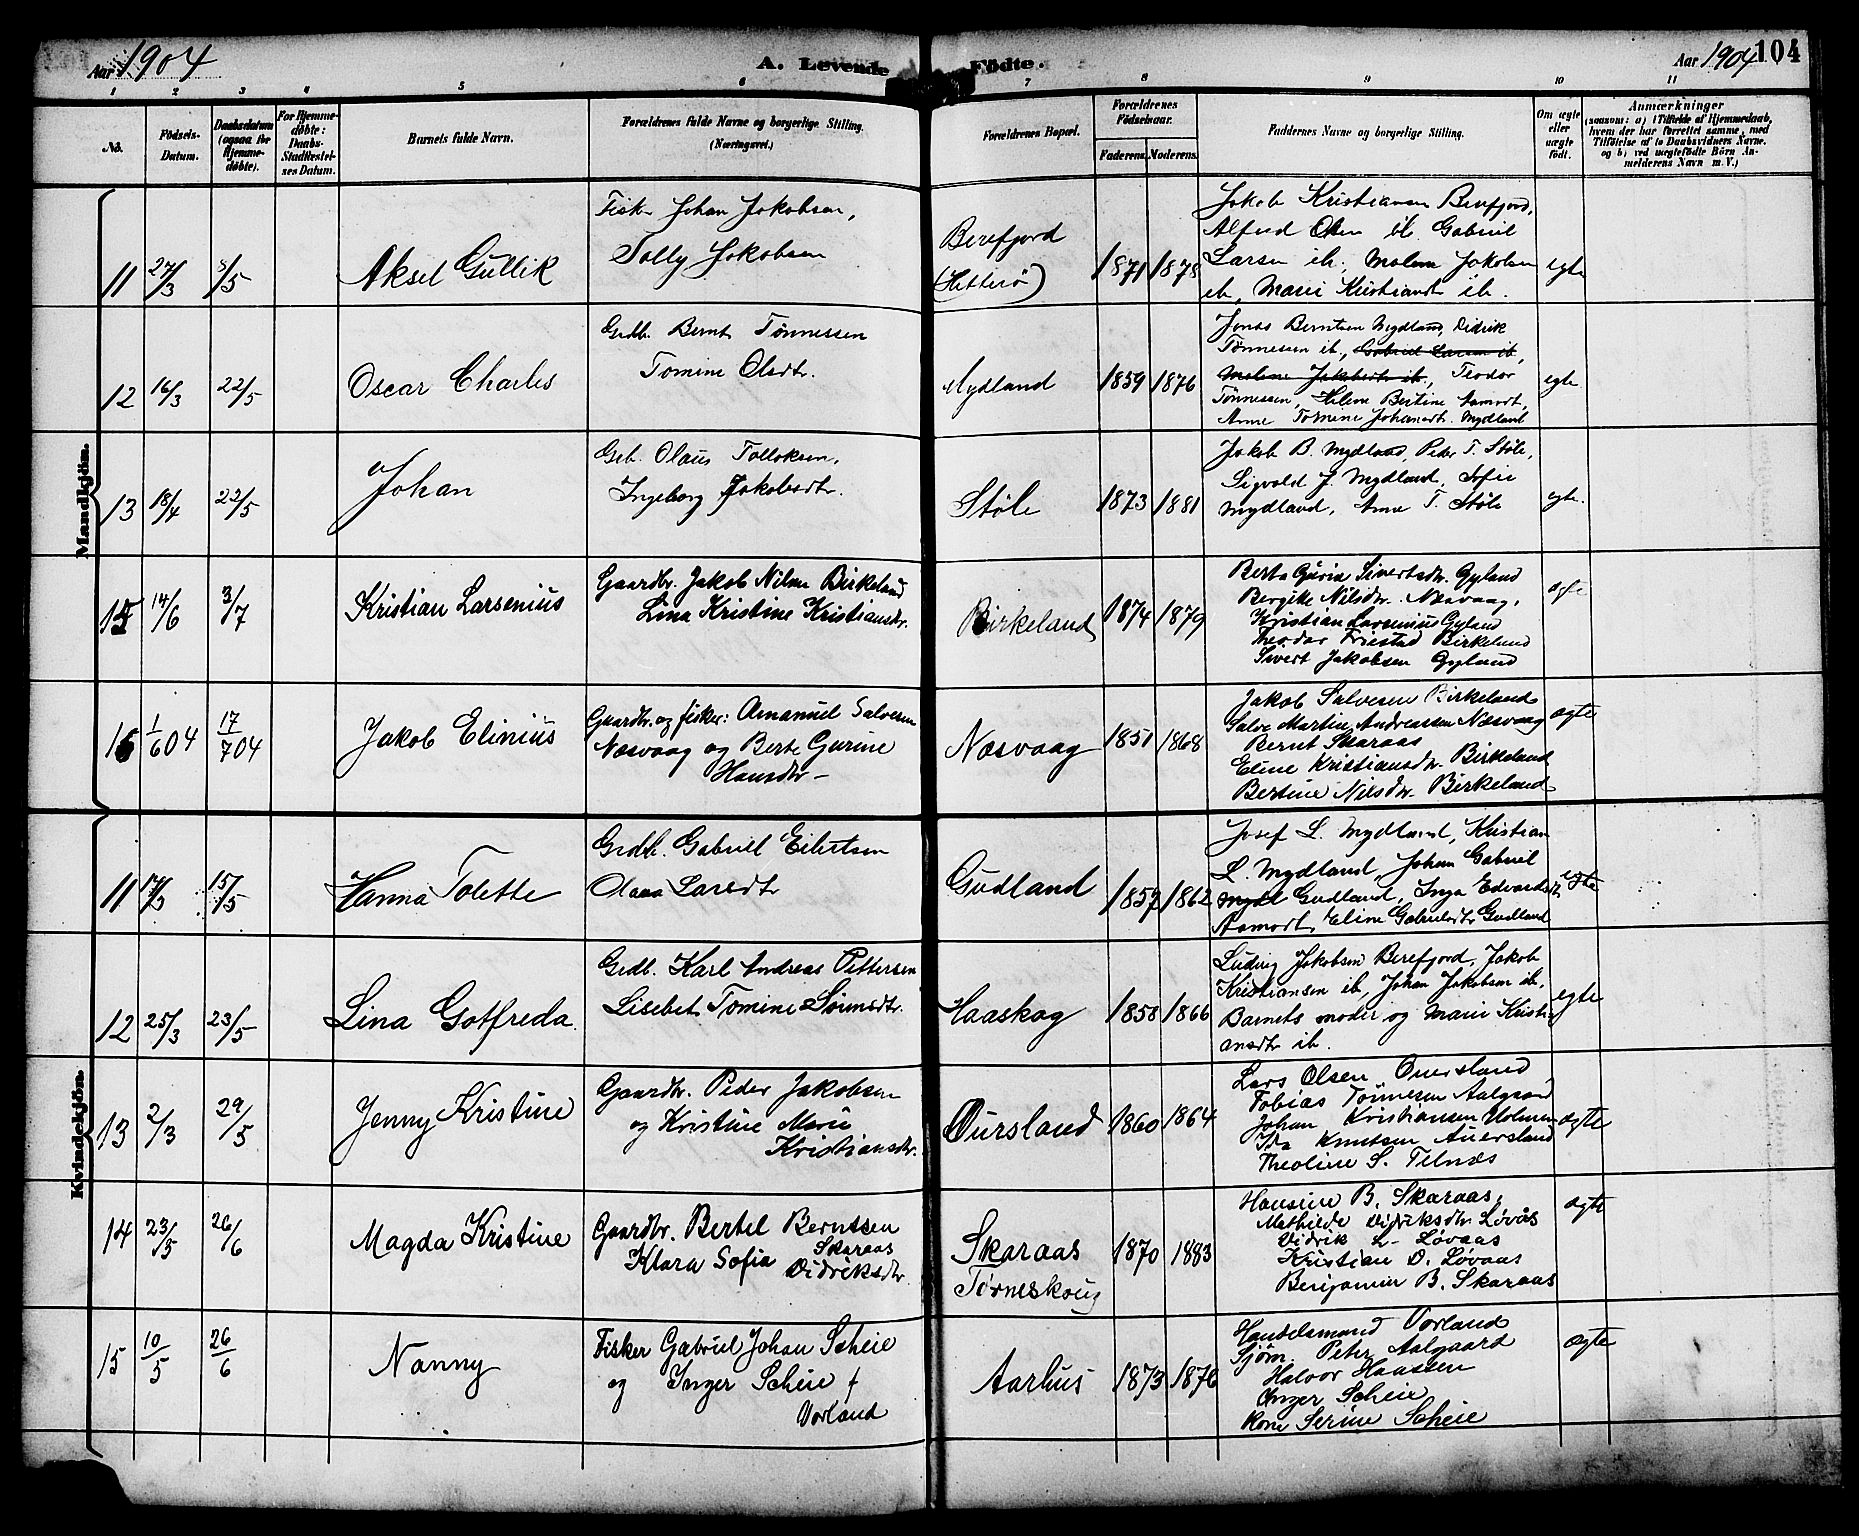 Aar 1904
A. Levende Födte.
Aar 1904
104
1 2 3 4 5 6 7 8 9 10 11
No.
Födsels-Datum.
Daabsdatum (ogsaa for Hjemme-døbte).
For Hjemme-døbte: Daabs-Stadfæstel-ses Datum.
Barnets fulde Navn.
Forældrenes fulde Navne og borgerlige Stilling. (Næringsvei.)
Forældrenes Bopæl.
Forældrenes Födselsaar.
Faderens. Moderens.
Faddernes Navne og borgerlige Stilling.
Om ægte eller uægte födt.
Anmærkninger
(saasom: a) i Tilfælde af Hjemmedaab, hvem der har forrettet samme, med Tilföielse af to Daabsvidners Navne. og b) ved uægtefödte Börn An-melderens Navn m. V.)
Mandkjön.
11 27/3 8/5 Aksel Gullik
Fisk. Johan Jakobsen,
Tolly Jakobsen
Berefjord
(Hitterø)
1871 1878
Jakob Kristiansen Berefjord,
Alfred Olsen ib. Gabriel
Larsen ib., Malene Jakobsen
ib, Marie Kristiansdt ib.
egte
12 16/3 22/5 Oscar Charles
Grdb. Bernt Tønnessen
Tomine Olsdtr.
Mydland
1859 1876
Jonas Berntsen Mydland, Didrik
Tønnesen ib., Gabriel Larsen ib,
Malene Jakobsdt ib., Teodor
Tønnessen, Helene Bertine Aamodt,
Anne Tomine Johansdtr. Mydland
egte.
13 18/4 22/5 Johan
Grb. Olaus Tolloksen,
Ingeborg Jakobsdtr.
Støle
1873 1881
Jakob B. Mydland, Peder T. Støle,
Sigvald J. Mydland, Sofie
Mydland, Anne T. Støle
egte.
15 14/6 3/7 Kristian Larsenius
Gaardbr. Jakob Nilsen Birkeland
Lina Kristine Kristiansdr.
Birkeland
1874 1879
Berta Gurie Sivertsdtr. Gyland
Bergite Nilsdtr. Næsvaag,
Kristian Larsenius Gyland
Theodor Friestad Birkeland
Sivert Jakobsen Gyland
ægte
16 1/6 04 17/7 04 Jakob Elinius
Gaardbr. og fisker: Amanuel Salvesen
Næsvaag og Berte Gurine
Hansdtr –
Næsvaag
1851 1868
Jakob Salvesen Birkeland
Salve Martin Andreassen Næsvaag
Bernt Skaraas
Eline Kristiansdtr. Birkeland
Bertine Nilsdtr. Birkeland
ægte
Kvindekjön.
11 15/5 Hanna Tolette
Grdb. Gabriel Eilertsen
Olava Larsdtr
Gudland
1857 1862
Josef L. Mydland, Kristian
L. Mydland, Johan Gabriel
Mydl Gudland, Inga Edvardsdt.
Aamodt, Eline Gabrielsdtr Gudland
egte
12 25/3 23/5 Lina Gotfreda
Grdb. Karl Andreas Pettersen
Lisebet Tomine Sørensdtr.
Haaskog
1858 1866
Ludvig Jakobsen Berefjord, Jakob
Kristiansen ib, Johan Jakobsen ib.
Barnets moder og Marie Kristi-
ansdtr ib.
egte
13 2/3 29/5 Jenny Kristine
Gaardbr. Peder Jakobsen
og Kristine Marie
Kristiansdtr.
Oursland
1860 1864
Lars Olsen Ouersland
Tobias Tønnesen Aalgaard
Johan Kristiansen Holmen
Ida Knutsen Auersland
Theoline S. Telnæs
ægte
14 23/5 26/6 Magda Kristine
Gaardbr. Bertel Berntsen
Skaraas
Klara Sofia Didriksdtr.
Skaraas
Tørneskoug
1870 1883
Hansine B. Skaraas,
Mathilde Didriksdtr Løvås
Didrik L- Løvaas
Kristian D. Løvaas
Benjamin B. Skaraas
ægte
15 10/5 26/6 Nanny
Fisker Gabriel Johan Scheie
og Inger Scheie f
Vorland
Aarhus
1873 1876
Handelsmand Vorland
Sjøm. Peter Aalgaard
Halvor Haassen
Inger Scheie
Kone Serine Scheie
ægte